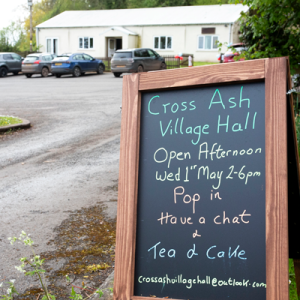 Cross Ash
Village Hall
Open Afternoon
Wed 1st May 2-6pm
Pop in
Have a chat
&
Tea & Cake
crossashvillagehall@outlook.com